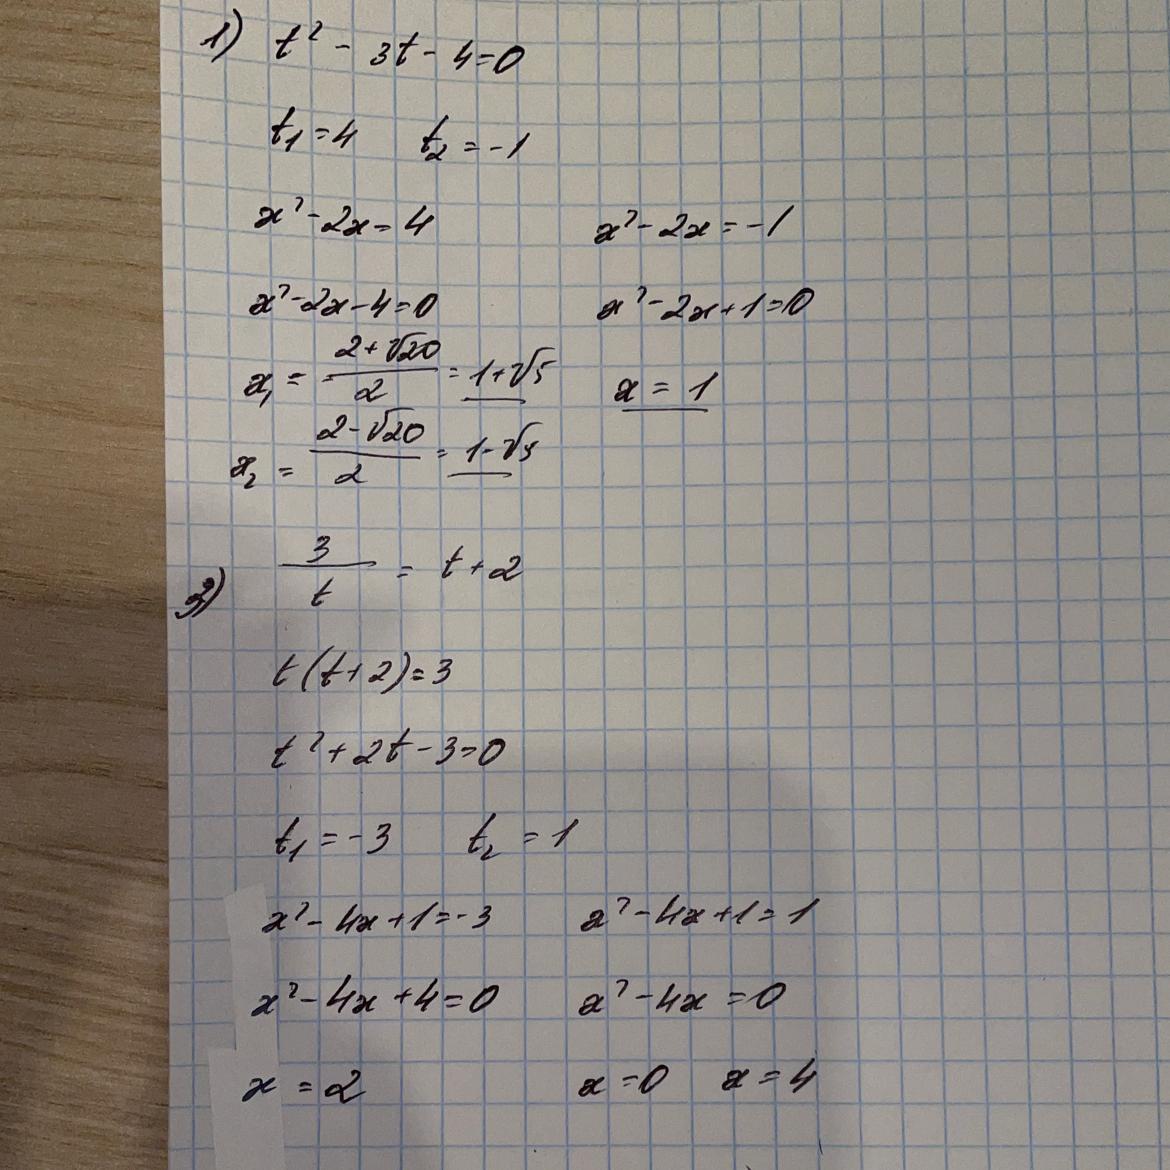 1) t² - 3t - 4 = 0
t₁ = 4 t₂ = -1
x² - 2x = 4 x² - 2x = -1
x² - 2x - 4 = 0 x² - 2x + 1 = 0
x₁ = (2 + √20)/2 = 1 + √5 x = 1
x₂ = (2 - √20)/2 = 1 - √5
3) 3/t = t + 2
t(t + 2) = 3
t² + 2t - 3 = 0
t₁ = -3 t₂ = 1
x² - 4x + 1 = -3 x² - 4x + 1 = 1
x² - 4x + 4 = 0 x² - 4x = 0
x = 2 x = 0 x = 4